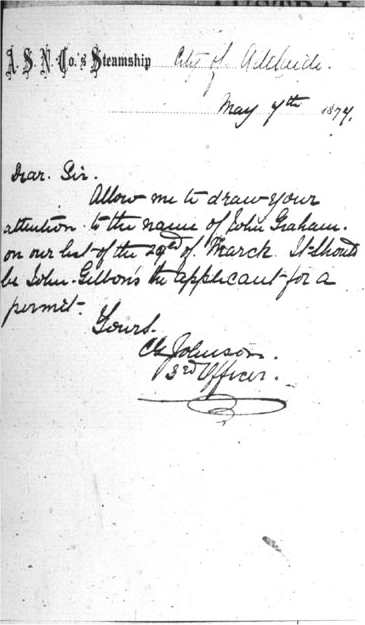 A. S. N. Co.'s Steamship City of Adelaide.
May 7th 1877.
Dear. Sir.
Allow me to draw your
attention. to the name of John Graham.
on our list of the 29th of March. It should
be John Gibbons the applicant for a
permit.
Yours.
Johnson.
3rd Officer.